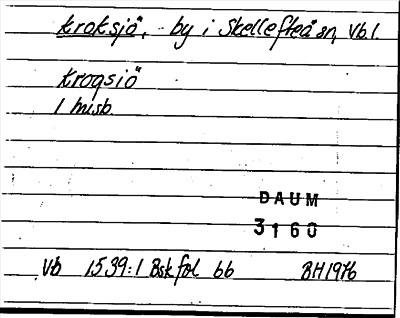 kroksjö, by i Skellefteå sn, Vb.l.
kroqsiö
1 misb.
DAUM
3160
Vb 1539:1 Bskfol bb BH1976